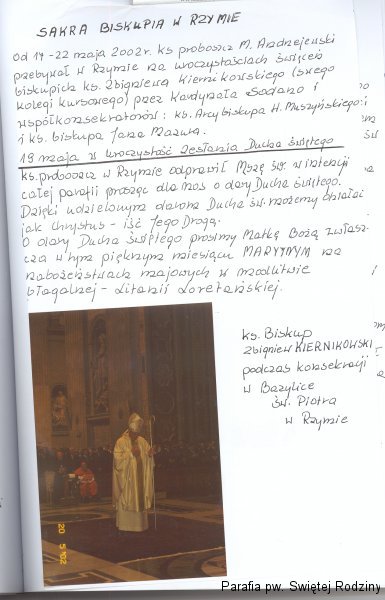 SAKRA BISKUPIA W RZYMIE
Od 17-22 maja 2002r. ks proboszcz M. Andrzejewski
przebywał w Rzymie na uroczystościach święceń
biskupich ks. Zbigniewa Kiernikowskiego (swego
kolegi kursowego) przez Kardynała Sodano i
współkonsekratorów: ks. Arcybiskupa H. Muszyńskiego
i ks. biskupa Jana Mazura.
19 maja w uroczystość Zesłania Ducha świętego
ks. proboszcz w Rzymie odprawił Mszę św. w intencji
całej parafii prosząc dla nas o dary Ducha świętego.
Dzięki udzielonym darom Ducha św. możemy działać
jak Chrystus - iść Jego Drogą.
O dary Ducha świętego prosimy Matkę Bożą zwłasz-
cza w tym pięknym miesiącu MARYJNYM na
nabożeństwach majowych w modlitwie
błagalnej - Litanii Loretańskiej.
ks. Biskup
Zbigniew KIERNIKOWSKI
podczas konsekracji
w Bazylice
św. Piotra
w Rzymie
20 5'02
Parafia pw. Swiętej Rodziny